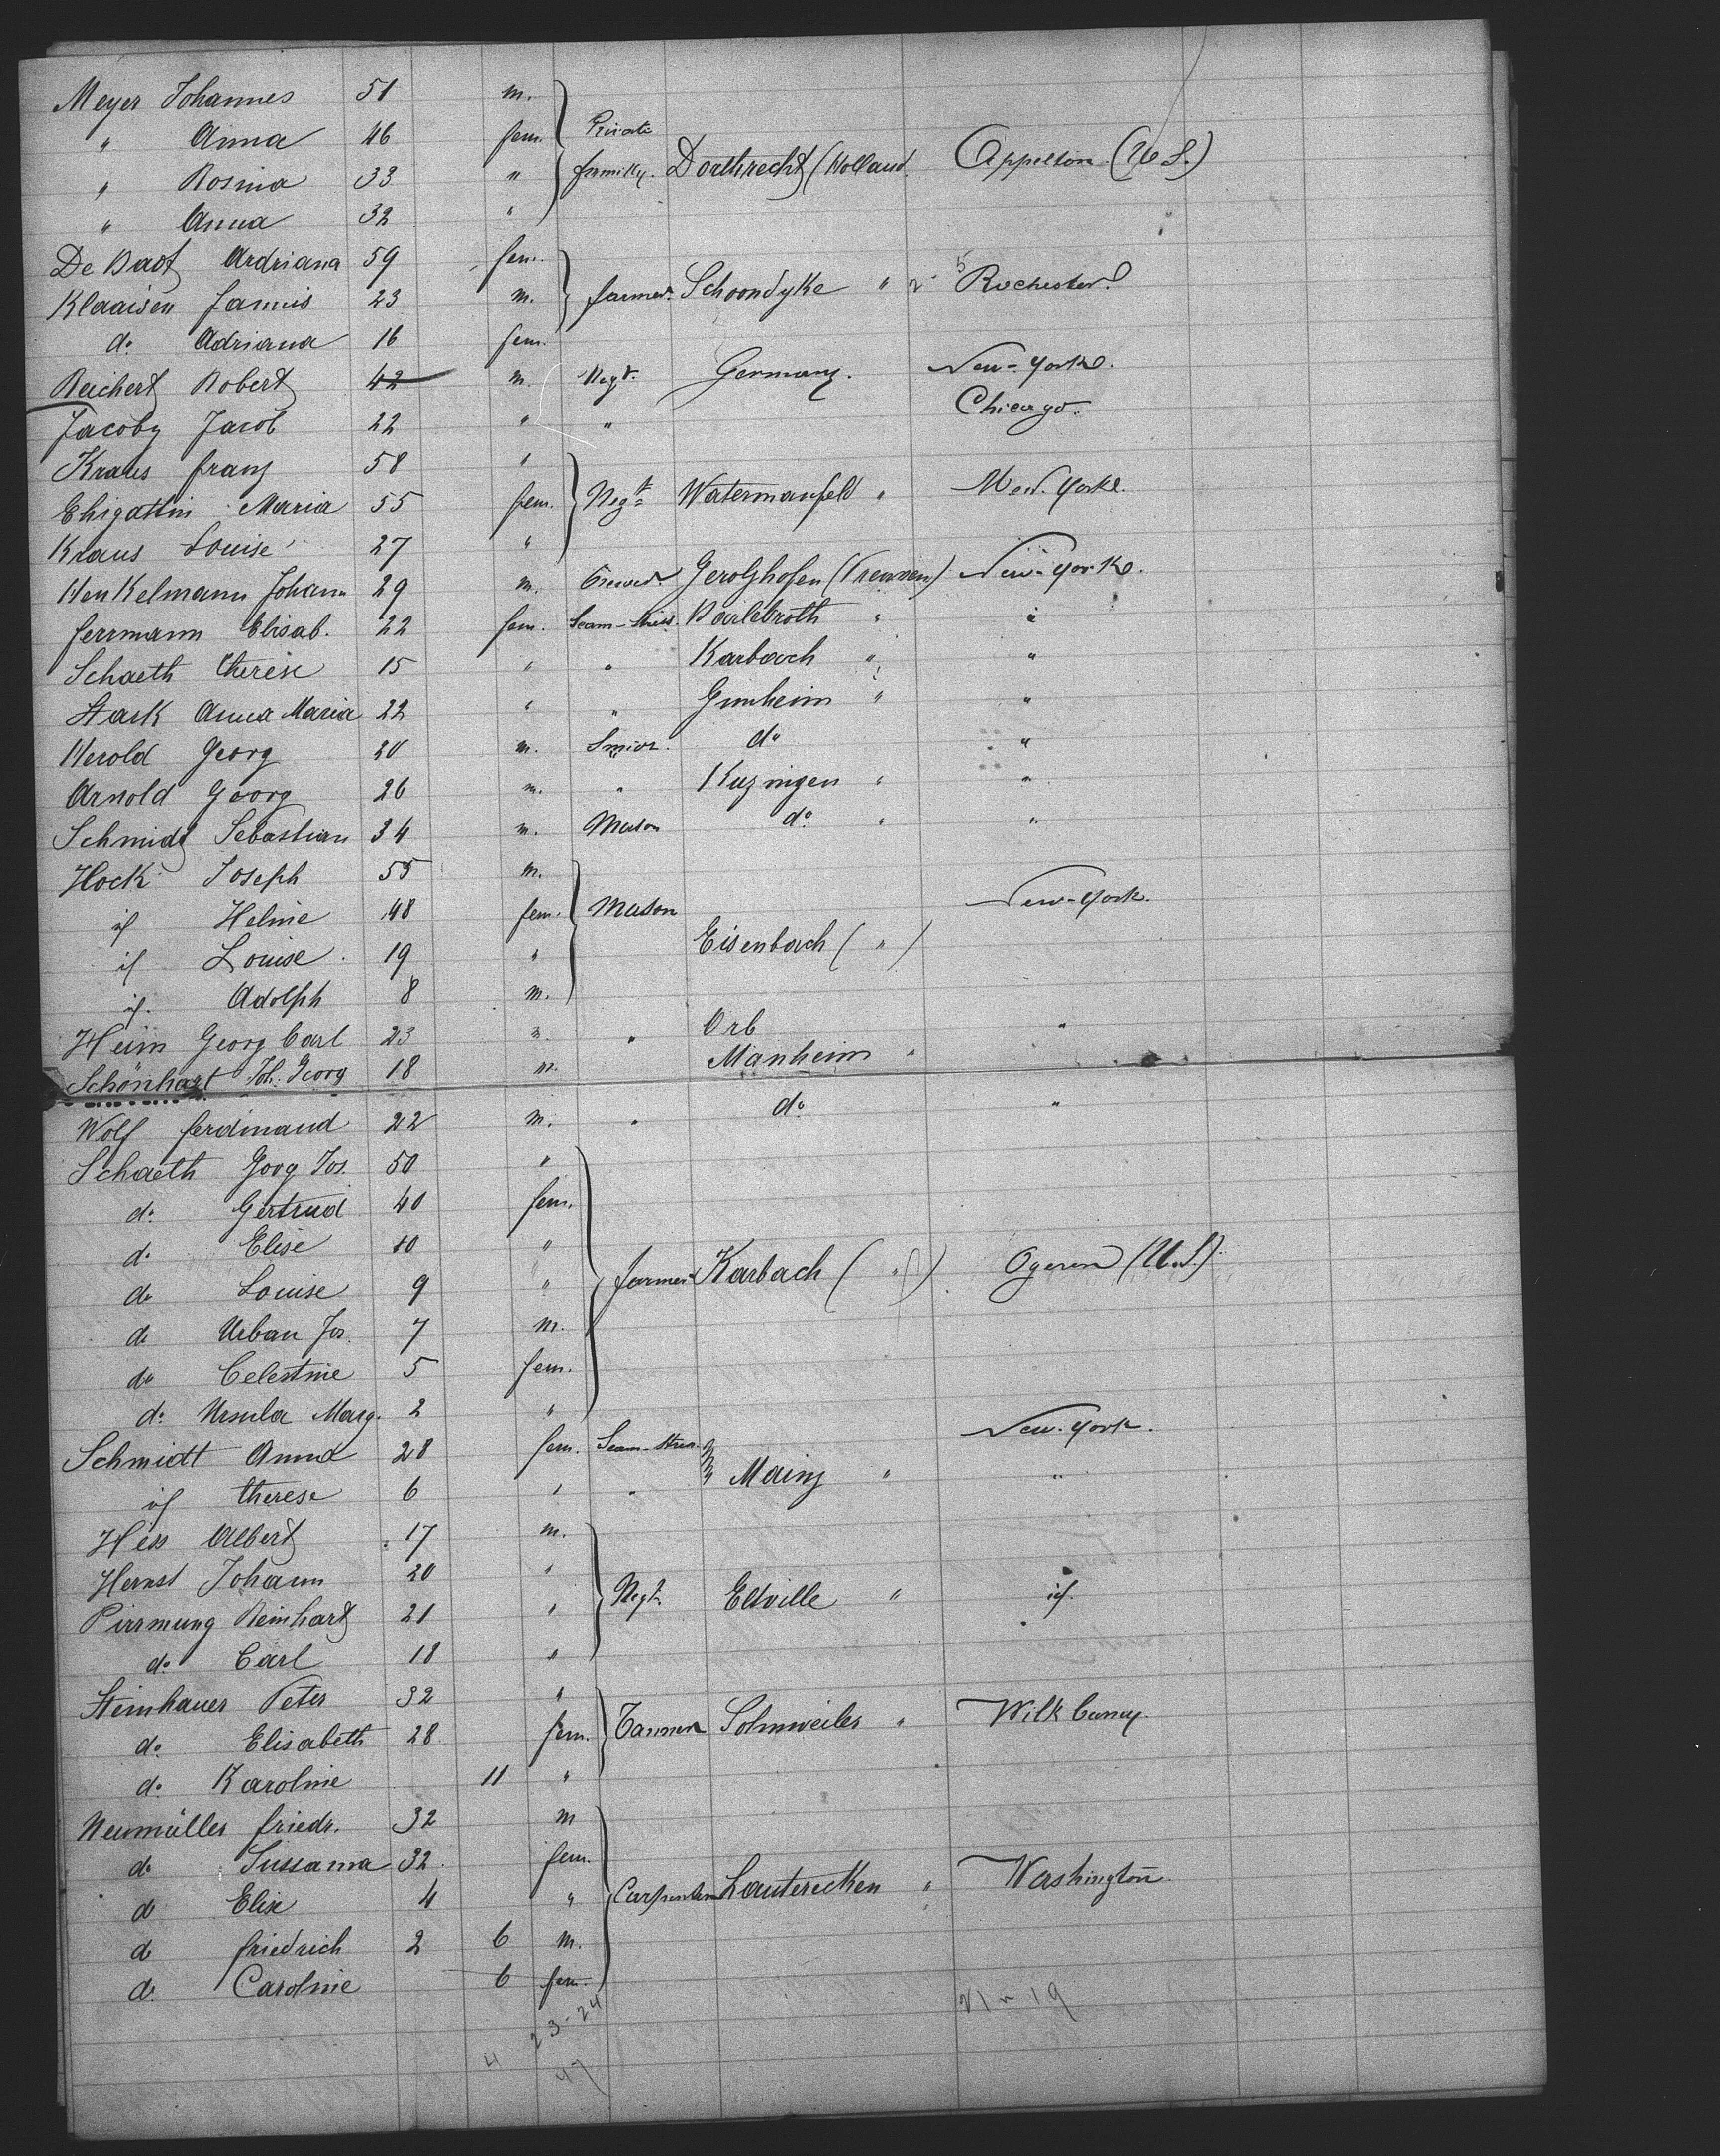 Meyer Johannes 51 m.
" Anna 46 fem. Private
" Rosina 33 " familly. Dorthrecht (Holland. Appelton (U S.)
" Anna 32 "
De Badt Ardriana 59 fem.
Klaaisen Jannis 23 m. farmer. Schoondyke " Rochester.
do Adriana 16 fem.
Reichert Robert 42 m. Negt. Germany. New-York.
Jacoby Jacob 22 " " Chicago.
Kraus franz 58 "
Ehigattin Maria 55 fem. Negt Watermanfeld " New-York.
Kraus Louise 27 "
Henkelmann Johann 29 m. Gerolzhofen New-York.
ferrmann Elisab. 22 fem. Seam-stress. " "
Schaeth therese 15 " " Karbach " "
Stark Anna Maria 22 " " Gimheim " "
Herold Georg 20 m. do "
Arnold Georg 26 m. " Kuzingen " "
Schmidt Sebastian 34 m. Mason do " "
Hock Joseph 55 m.
if Helene 48 fem. Mason New-York.
if Louise 19 " Eisenbach ( " )
if. Adolph 8 m.
Heim Georg Carl 23 m. " Orb "
Schönhart Joh. Georg 18 m. Manheim "
Wolf ferdinand 22 m. " do "
Schaeth Georg Jos. 50 "
do Gertrud 40 fem.
do Elise 10 "
do Louise 9 " farmer Karbach ( " ) (U.S.)
do Urban Jos. 7 m.
do Celestine 5 fem.
do Ursula Marg. 2 "
Schmidt Anna 28 fem. Seam-stress New-York.
if therese 6 " " Mainz " "
Hess Albert 17 m.
Hernst Johann 20 "
Pirrmung Reinhart 21 " Negt. Eltville " if.
do Carl 18 "
Steinhauer Peter 32 "
do Elisabeth 28 fem. Tanner Sohnweiler "
do Karoline 11 "
Neumüller friedr. 32 m
do Sussanna 32 fem.
do Elise 4 " Carpenter Lauterecken " Washington.
do friedrich 2 6 m.
do Caroline 6 fem.
23-24
4 47